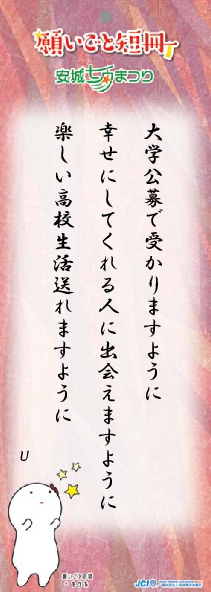 願いごと短冊
安城七夕まつり
大学公募で受かりますように
幸せにしてくれる人に出会えますように
楽しい高校生活送れますように
U
JCI